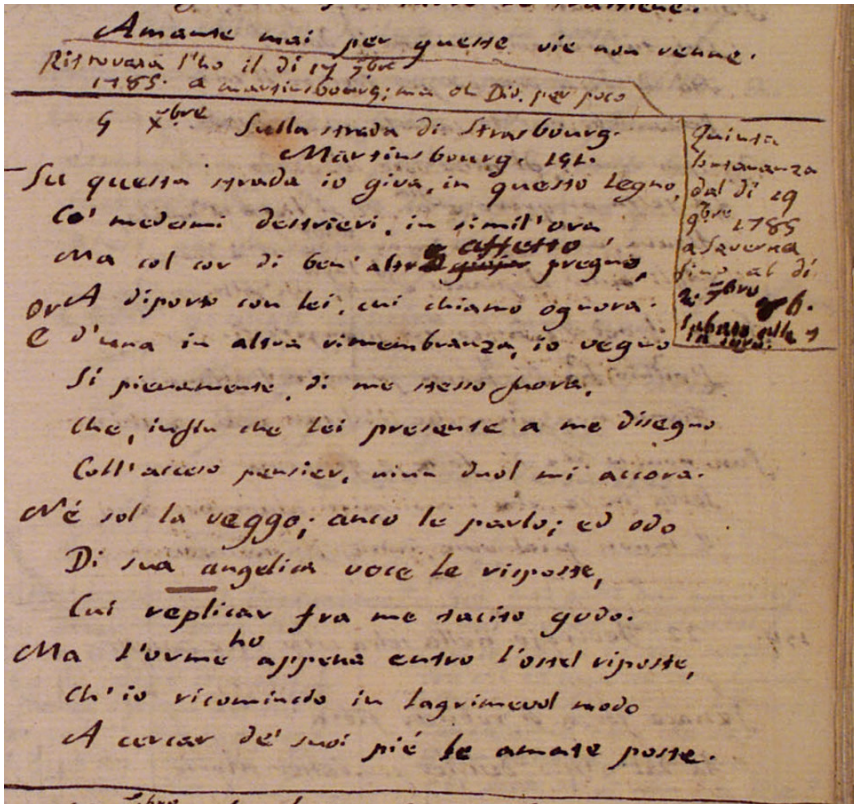 Amante mai per queste vie non venne.
Ritrovata l'ho il di 17 7bre
1785. a Martinsbourg; ma oh Dio. per poco
9 Xbre Sulla strada di Strasbourg.
Martinsbourg. 191.
Su questa strada io giva, in questo legno,
Co' medemi destrieri, in simil'ora
Ma col cor di ben' altro affetto pregno,
A diporto con lei, cui chiamo ognora.
Or
E d'una in altra rimembranza, io vegno
Sì pienamente, di me stesso fuora,
Che, infin che lei presente a me disegno
Coll'acceso pensier, niun duol mi accora.
Né sol la veggo; anco le parlo; ed odo
Di sua angelica voce le risposte,
Cui replicar fra me tacito godo.
Ma l'orme ho appena entro l'ostel riposte,
Ch'io ricomincio in lagrimevol modo
A cercar de' suoi piè le amate poste.
Quinta
lontananza
dal di 19
9bre 1785
a Saverna
fino al di